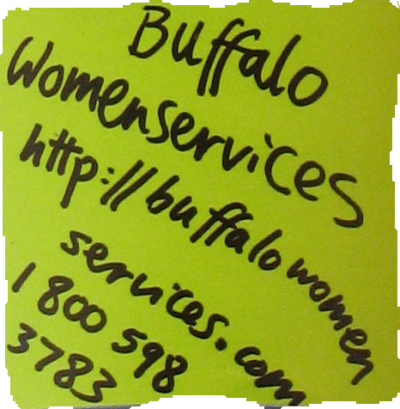 Buffalo
Womenservices
http://buffalowomen
services.com
1 800 598
3783